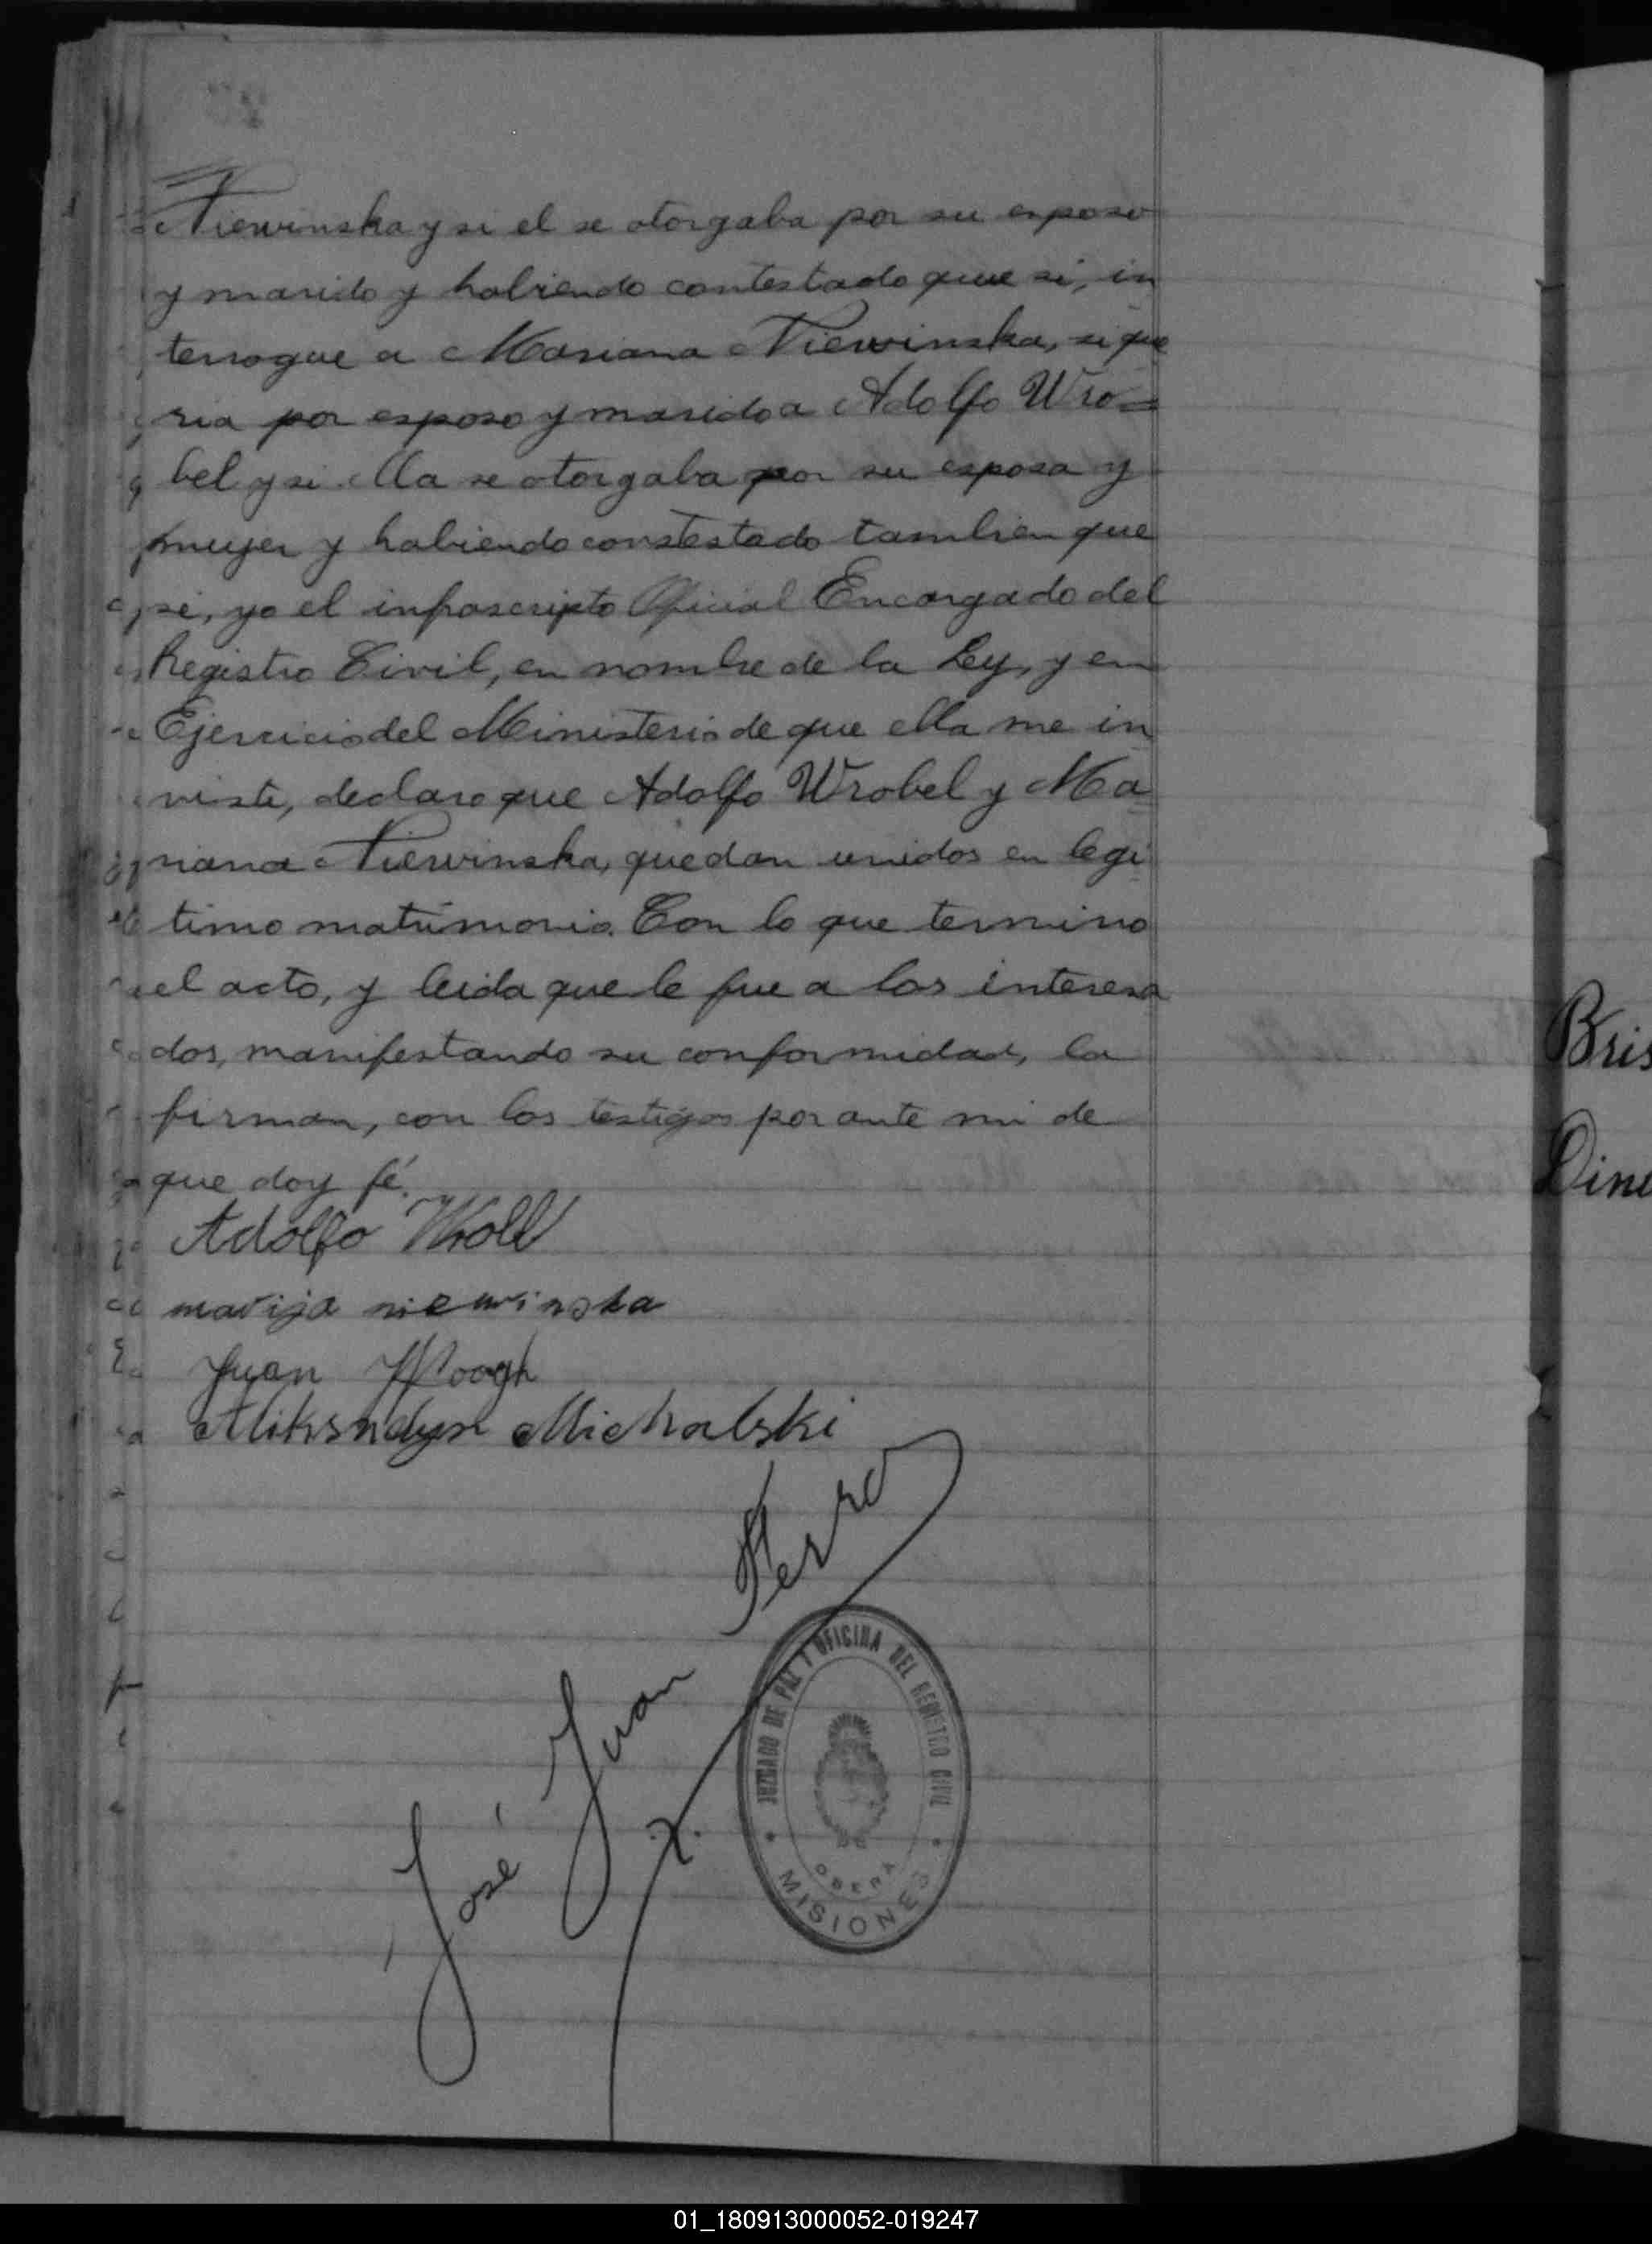 Niewinska y si el se otorgaba por su esposo
y marido y habiendo contestado que si, in
terrogue a Mariana Niewinska, si que
ria por esposo y marido a Adolfo Wro=
bel y si ella se otorgaba por su esposa y
mujer y habiendo constestado tambien que
si, yo el infrascripto Oficial Encargado del
Registro Civil, en nombre de la Ley, y en
Ejercicio del Ministerio de que ella me in
viste, declaro que Adolfo Wrobel y Ma
riana Niewinska, quedan unidos en legi
timo matrimonio. Con lo que termino
el acto, y leida que le fue a los interesa
dos, manifestando su conformidad, la
firman, con los testigos por ante mi de
que doy fé.
Adolfo
marija niewinska
Juan
Aliksndyr Michalski
José Juan Ferro
JUZGADO DE PAZ Y OFICINA DEL REGISTRO CIVIL
DE
OBERA
MISIONES
Bris
01_180913000052-019247